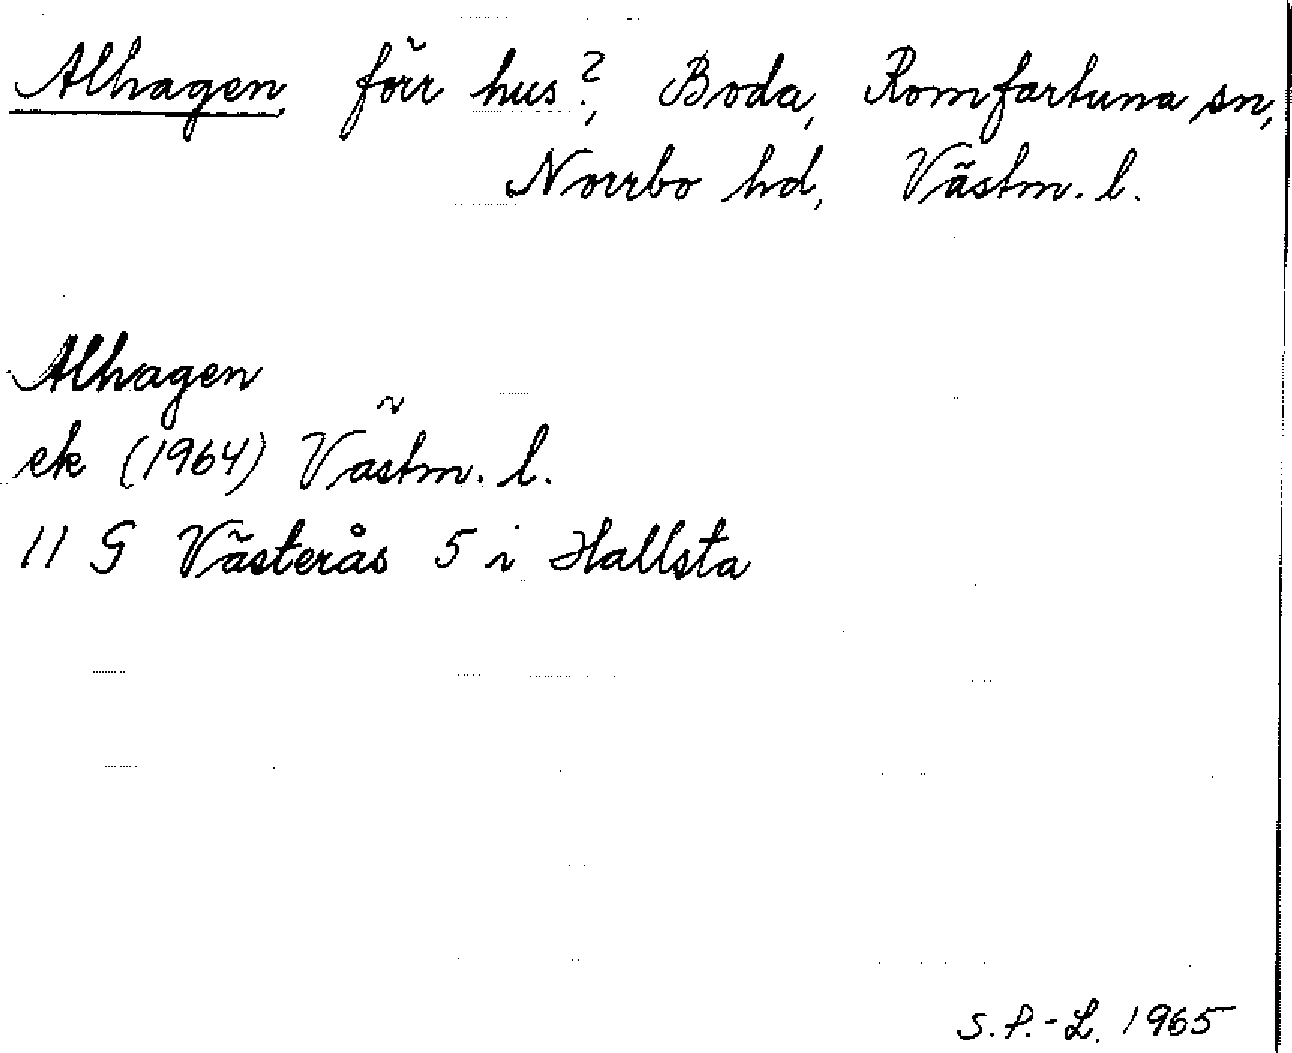 Alhagen, förr hus?, Boda, Romfartuna sn,
Norrbo hd, Västm. l.
Alhagen
ek (1964) Västm. l.
11 G Västerås 5 i Hallsta
S.P.-L. 1965